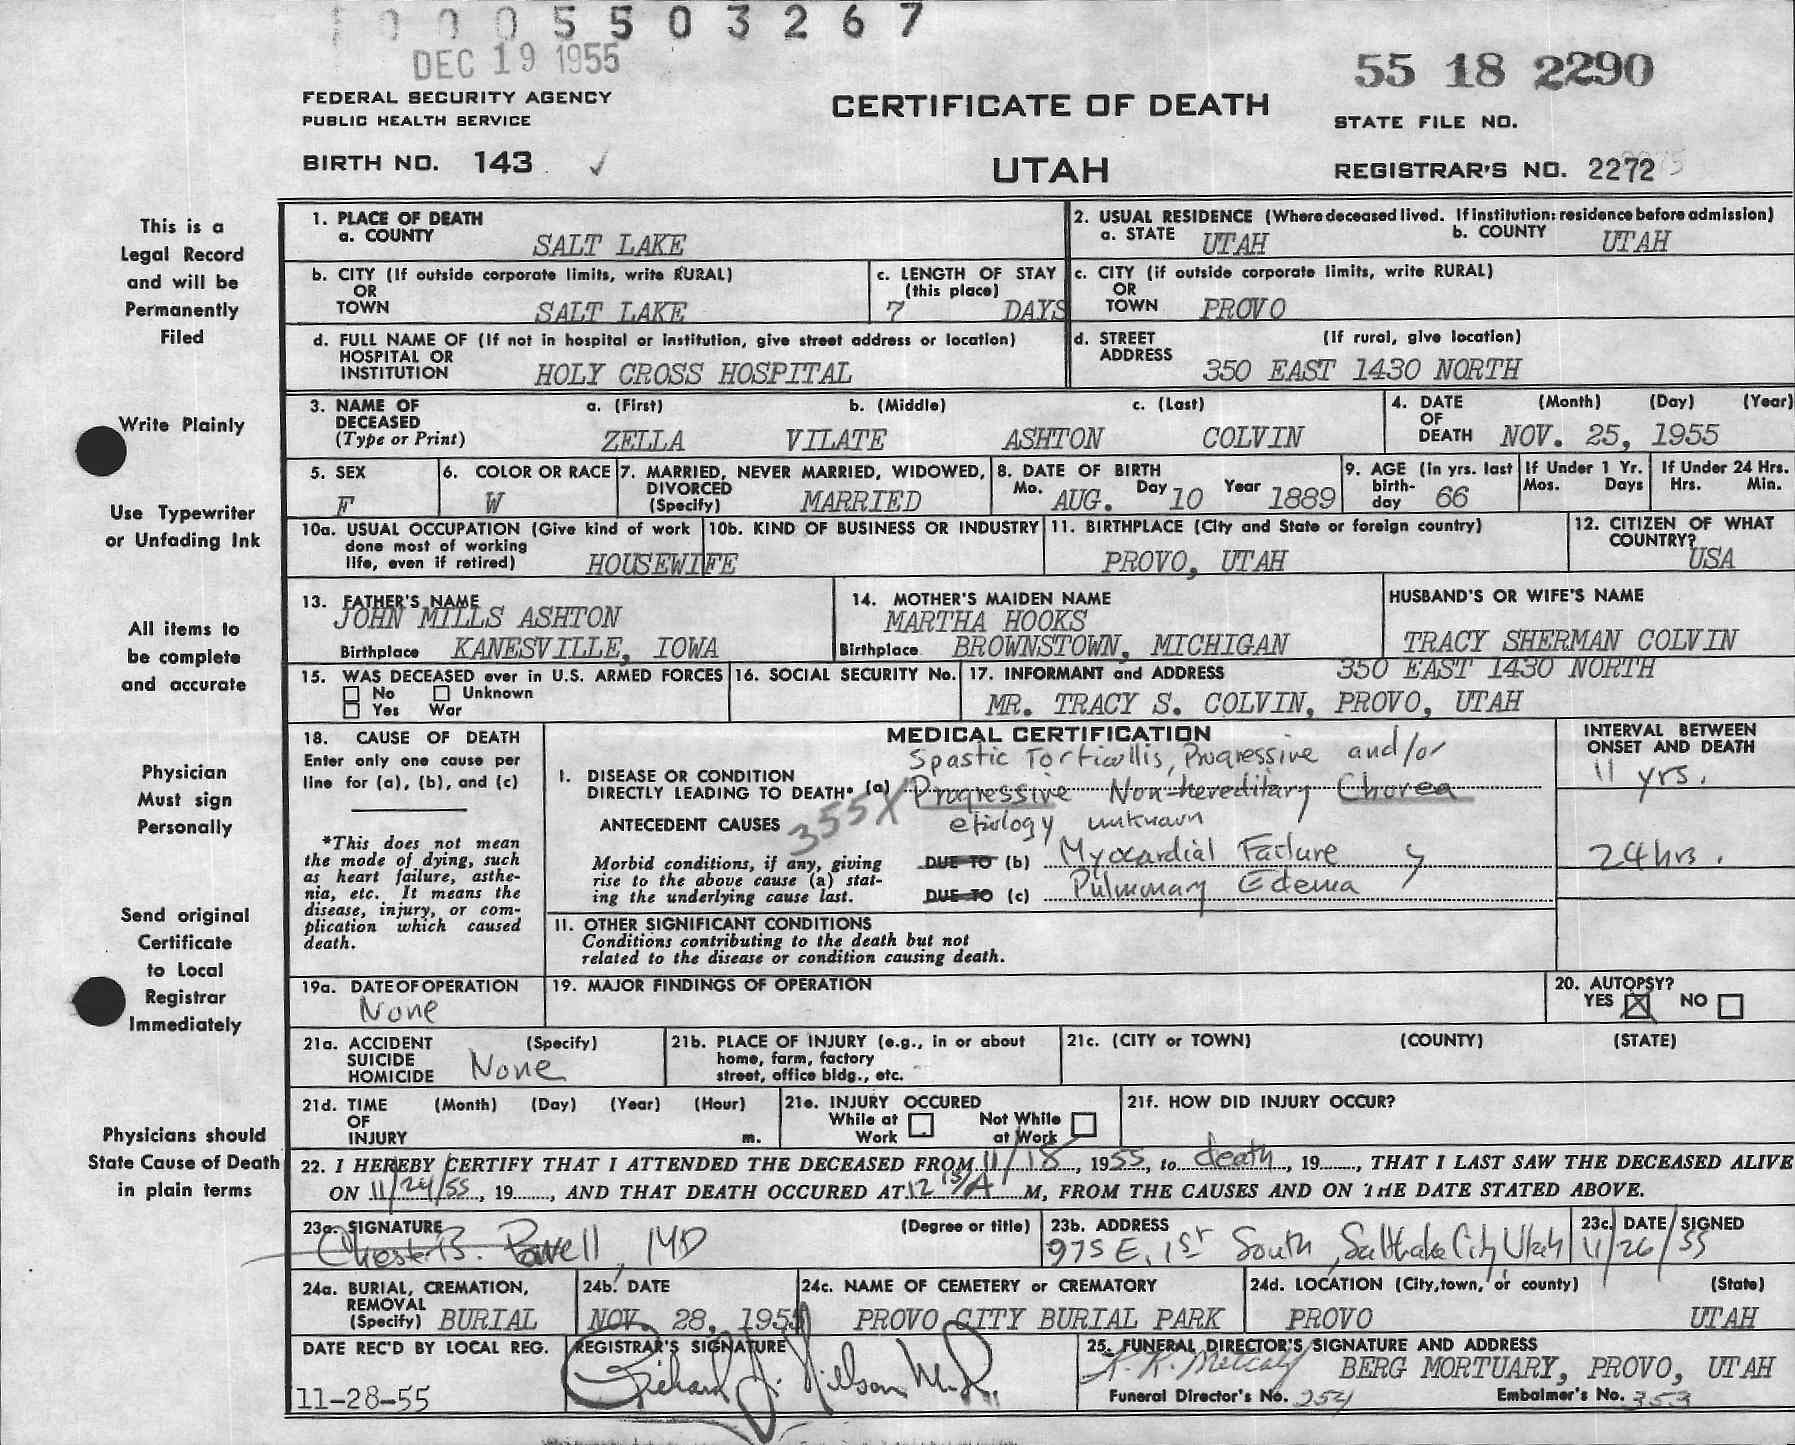 0 0 0 5 5 0 3 2 6 7
DEC 19 1955
55 18 2290
FEDERAL SECURITY AGENCY
PUBLIC HEALTH SERVICE
CERTIFICATE OF DEATH
STATE FILE NO.
BIRTH NO. 143 ✓
UTAH
REGISTRAR'S NO. 2272
This is a
Legal Record
and will be
Permanently
Filed
Write Plainly
Use Typewriter
or Unfading Ink
All items to
be complete
and accurate
Physician
Must sign
Personally
Send original
Certificate
to Local
Registrar
Immediately
Physicians should
State Cause of Death
in plain terms
1. PLACE OF DEATH
a. COUNTY
SALT LAKE
2. USUAL RESIDENCE (Where deceased lived. If institution: residence before admission)
a. STATE UTAH b. COUNTY UTAH
b. CITY (If outside corporate limits, write RURAL)
OR
TOWN SALT LAKE
c. LENGTH OF STAY
(this place)
7 DAYS
c. CITY (if outside corporate limits, write RURAL)
OR
TOWN PROVO
d. FULL NAME OF (If not in hospital or institution, give street address or location)
HOSPITAL OR
INSTITUTION HOLY CROSS HOSPITAL
d. STREET (If rural, give location)
ADDRESS
350 EAST 1430 NORTH
3. NAME OF a. (First) b. (Middle) c. (Last)
DECEASED
(Type or Print) ZELLA VILATE ASHTON COLVIN
4. DATE (Month) (Day) (Year)
OF
DEATH NOV. 25, 1955
5. SEX
F
6. COLOR OR RACE
W
7. MARRIED, NEVER MARRIED, WIDOWED,
DIVORCED
(Specify) MARRIED
8. DATE OF BIRTH
Mo. Day Year
AUG. 10 1889
9. AGE (in yrs. last
birth-
day 66
If Under 1 Yr.
Mos. Days
If Under 24 Hrs.
Hrs. Min.
10a. USUAL OCCUPATION (Give kind of work
done most of working
life, even if retired) HOUSEWIFE
10b. KIND OF BUSINESS OR INDUSTRY
11. BIRTHPLACE (City and State or foreign country)
PROVO, UTAH
12. CITIZEN OF WHAT
COUNTRY?
USA
13. FATHER'S NAME
JOHN MILLS ASHTON
Birthplace KANESVILLE, IOWA
14. MOTHER'S MAIDEN NAME
MARTHA HOOKS
Birthplace BROWNSTOWN, MICHIGAN
HUSBAND'S OR WIFE'S NAME
TRACY SHERMAN COLVIN
15. WAS DECEASED ever in U.S. ARMED FORCES
No Unknown
Yes War
16. SOCIAL SECURITY No.
17. INFORMANT and ADDRESS 350 EAST 1430 NORTH
MR. TRACY S. COLVIN, PROVO, UTAH
18. CAUSE OF DEATH
Enter only one cause per
line for (a), (b), and (c)
*This does not mean
the mode of dying, such
as heart failure, asthe-
nia, etc. It means the
disease, injury, or com-
plication which caused
death.
MEDICAL CERTIFICATION
INTERVAL BETWEEN
ONSET AND DEATH
Spastic Torticollis, Progressive and/or
11 yrs.
I. DISEASE OR CONDITION
DIRECTLY LEADING TO DEATH* (a) Progressive Non-hereditary Chorea
ANTECEDENT CAUSES 355X etiology unknown
Morbid conditions, if any, giving
rise to the above cause (a) stat-
ing the underlying cause last.
DUE TO (b) Myocardial Failure 24 hrs.
DUE TO (c) Pulmonary Edema
II. OTHER SIGNIFICANT CONDITIONS
Conditions contributing to the death but not
related to the disease or condition causing death.
19a. DATE OF OPERATION
None
19. MAJOR FINDINGS OF OPERATION
20. AUTOPSY?
YES X NO
21a. ACCIDENT (Specify)
SUICIDE
HOMICIDE None
21b. PLACE OF INJURY (e.g., in or about
home, farm, factory
street, office bldg., etc.
21c. (CITY or TOWN) (COUNTY) (STATE)
21d. TIME (Month) (Day) (Year) (Hour)
OF
INJURY m.
21e. INJURY OCCURED
While at Not While
Work at Work
21f. HOW DID INJURY OCCUR?
22. I HEREBY CERTIFY THAT I ATTENDED THE DECEASED FROM 11/18, 1955, to death, 19......, THAT I LAST SAW THE DECEASED ALIVE
ON 11/24/55, 19......, AND THAT DEATH OCCURED AT 12 15/A M, FROM THE CAUSES AND ON THE DATE STATED ABOVE.
23a. SIGNATURE (Degree or title)
Chester B. Powell MD
23b. ADDRESS
975 E. 1st South, Salt Lake City Utah
23c. DATE SIGNED
11/26/55
24a. BURIAL, CREMATION,
REMOVAL
(Specify) BURIAL
24b. DATE
NOV. 28, 1955
24c. NAME OF CEMETERY or CREMATORY
PROVO CITY BURIAL PARK
24d. LOCATION (City, town, or county) (State)
PROVO UTAH
DATE REC'D BY LOCAL REG.
11-28-55
REGISTRAR'S SIGNATURE
Richard J. Nielson M.D.
25. FUNERAL DIRECTOR'S SIGNATURE AND ADDRESS
R. R. Metcalf BERG MORTUARY, PROVO, UTAH
Funeral Director's No. 254 Embalmer's No. 353